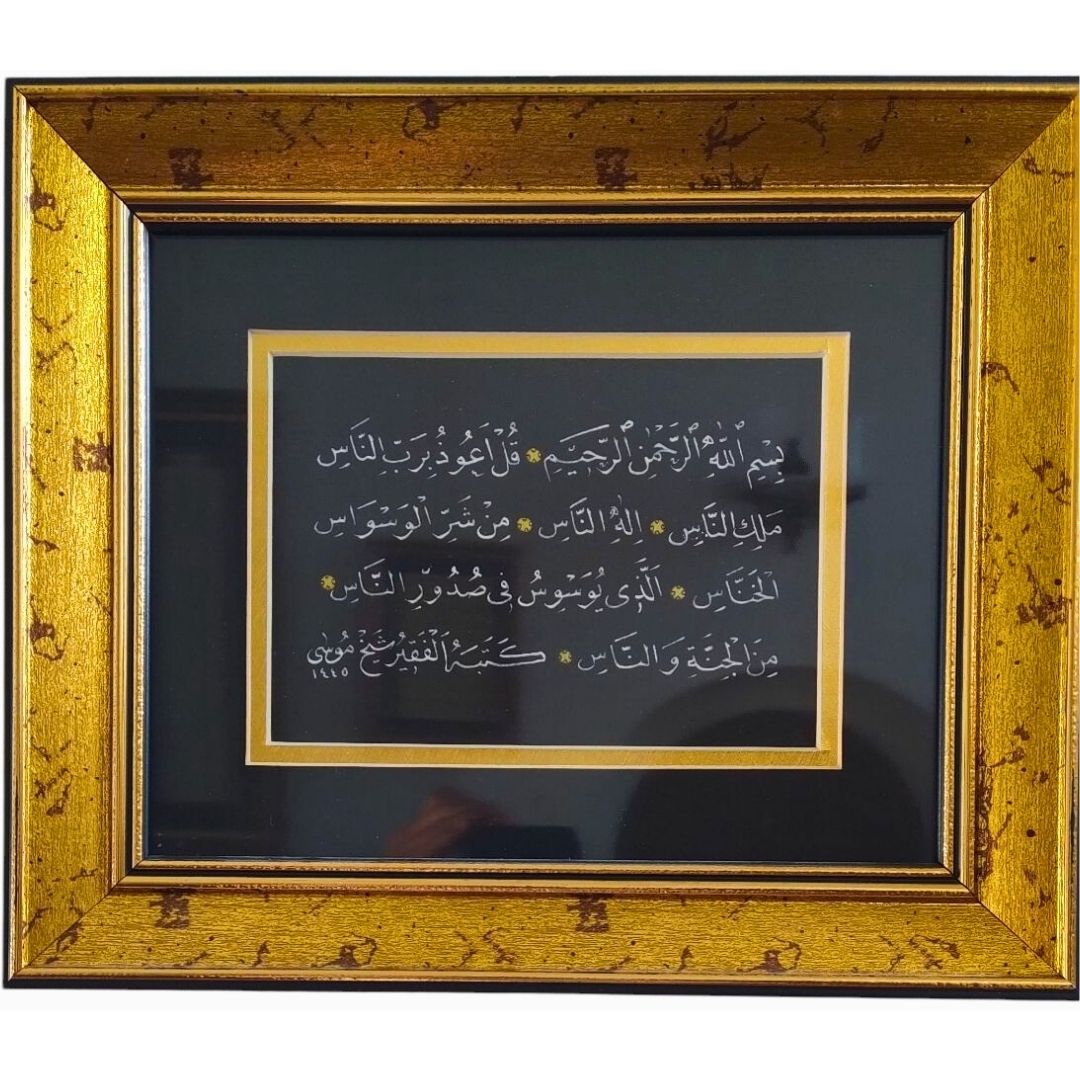 بِسْمِ ٱللّٰهِ ٱلرَّحْمٰنِ ٱلرَّحِيمِ ۞ قُلْ اَعُوذُ بِرَبِّ النَّاسِ
مَلِكِ النَّاسِ ۞ اِلٰهِ النَّاسِ ۞ مِنْ شَرِّ الْوَسْوَاسِ
الْخَنَّاسِ ۞ اَلَّذِي يُوَسْوِسُ فِي صُدُورِ النَّاسِ ۞
مِنَ الْجِنَّةِ وَالنَّاسِ ۞ كَتَبَهُ الْفَقِيرُ شَيْخ مُوسٰى
١٤٤٥